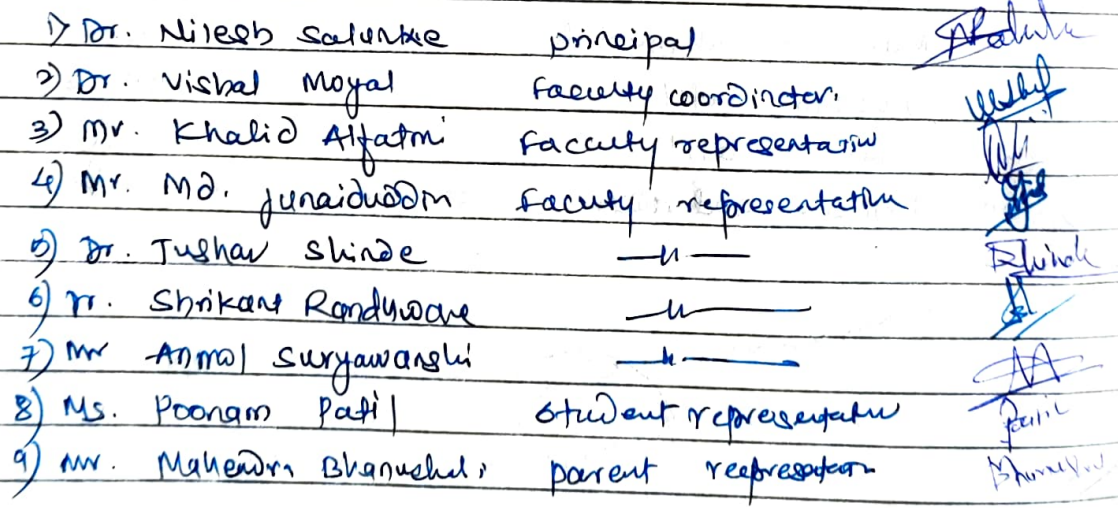 1) Dr. Nilesh Salunke principal
2) Dr. Vishal Moyal Faculty coordinator.
3) Mr. Khalid Alfatmi Faculty representative
4) Mr. Md. Junaiduddin Faculty representative
5) Dr. Tushar Shinde —〃— Shinde
6) Mr. Shrikant —〃—
7) Mr Anmol Suryawanshi —〃—
8) Ms. Poonam Patil Student representative Patil
9) Mr. Mahendra Bhanushali parent